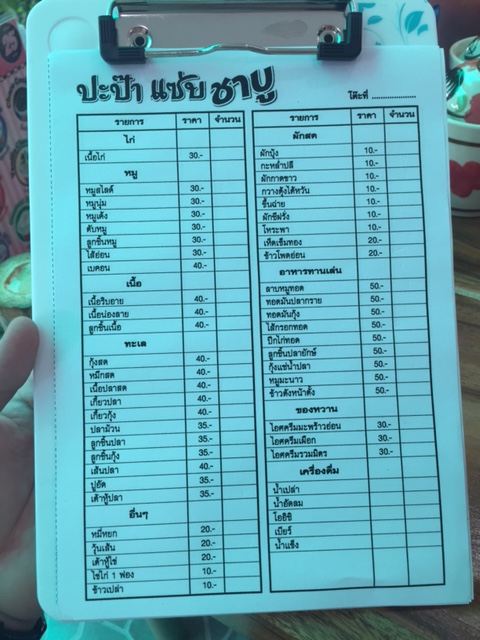 ปะป๊า แซ่บ ชาบู
โต๊ะที่ ....................
รายการ ราคา จำนวน
ไก่
เนื้อไก่ 30.-
หมู
หมูสไลด์ 30.-
หมูนุ่ม 30.-
หมูเด้ง 30.-
ตับหมู 30.-
ลูกชิ้นหมู 30.-
ไส้อ่อน 30.-
เบคอน 40.-
เนื้อ
เนื้อริบอาย 40.-
เนื้อน่องลาย 40.-
ลูกชิ้นเนื้อ 40.-
ทะเล
กุ้งสด 40.-
หมึกสด 40.-
เนื้อปลาสด 40.-
เกี๊ยวปลา 40.-
เกี๊ยวกุ้ง 40.-
ปลาม้วน 35.-
ลูกชิ้นปลา 35.-
ลูกชิ้นกุ้ง 35.-
เส้นปลา 40.-
ปูอัด 35.-
เต้าหู้ปลา 35.-
อื่นๆ
หมี่หยก 20.-
วุ้นเส้น 20.-
เต้าหู้ไข่ 20.-
ไข่ไก่ 1 ฟอง 10.-
ข้าวเปล่า 10.-
รายการ ราคา จำนวน
ผักสด
ผักบุ้ง 10.-
กะหล่ำปลี 10.-
ผักกาดขาว 10.-
กวางตุ้งไต้หวัน 10.-
ขึ้นฉ่าย 10.-
ผักชีฝรั่ง 10.-
โหระพา 10.-
เห็ดเข็มทอง 20.-
ข้าวโพดอ่อน 20.-
อาหารทานเล่น
ลาบหมูทอด 50.-
ทอดมันปลากราย 50.-
ทอดมันกุ้ง 50.-
ไส้กรอกทอด 50.-
ปีกไก่ทอด 50.-
ลูกชิ้นปลายักษ์ 50.-
กุ้งแช่น้ำปลา 50.-
หมูมะนาว 50.-
ข้าวตังหน้าตั้ง 50.-
ของหวาน
ไอศครีมมะพร้าวอ่อน 30.-
ไอศครีมเผือก 30.-
ไอศครีมรวมมิตร 30.-
เครื่องดื่ม
น้ำเปล่า
น้ำอัดลม
โออิชิ
เบียร์
น้ำแข็ง